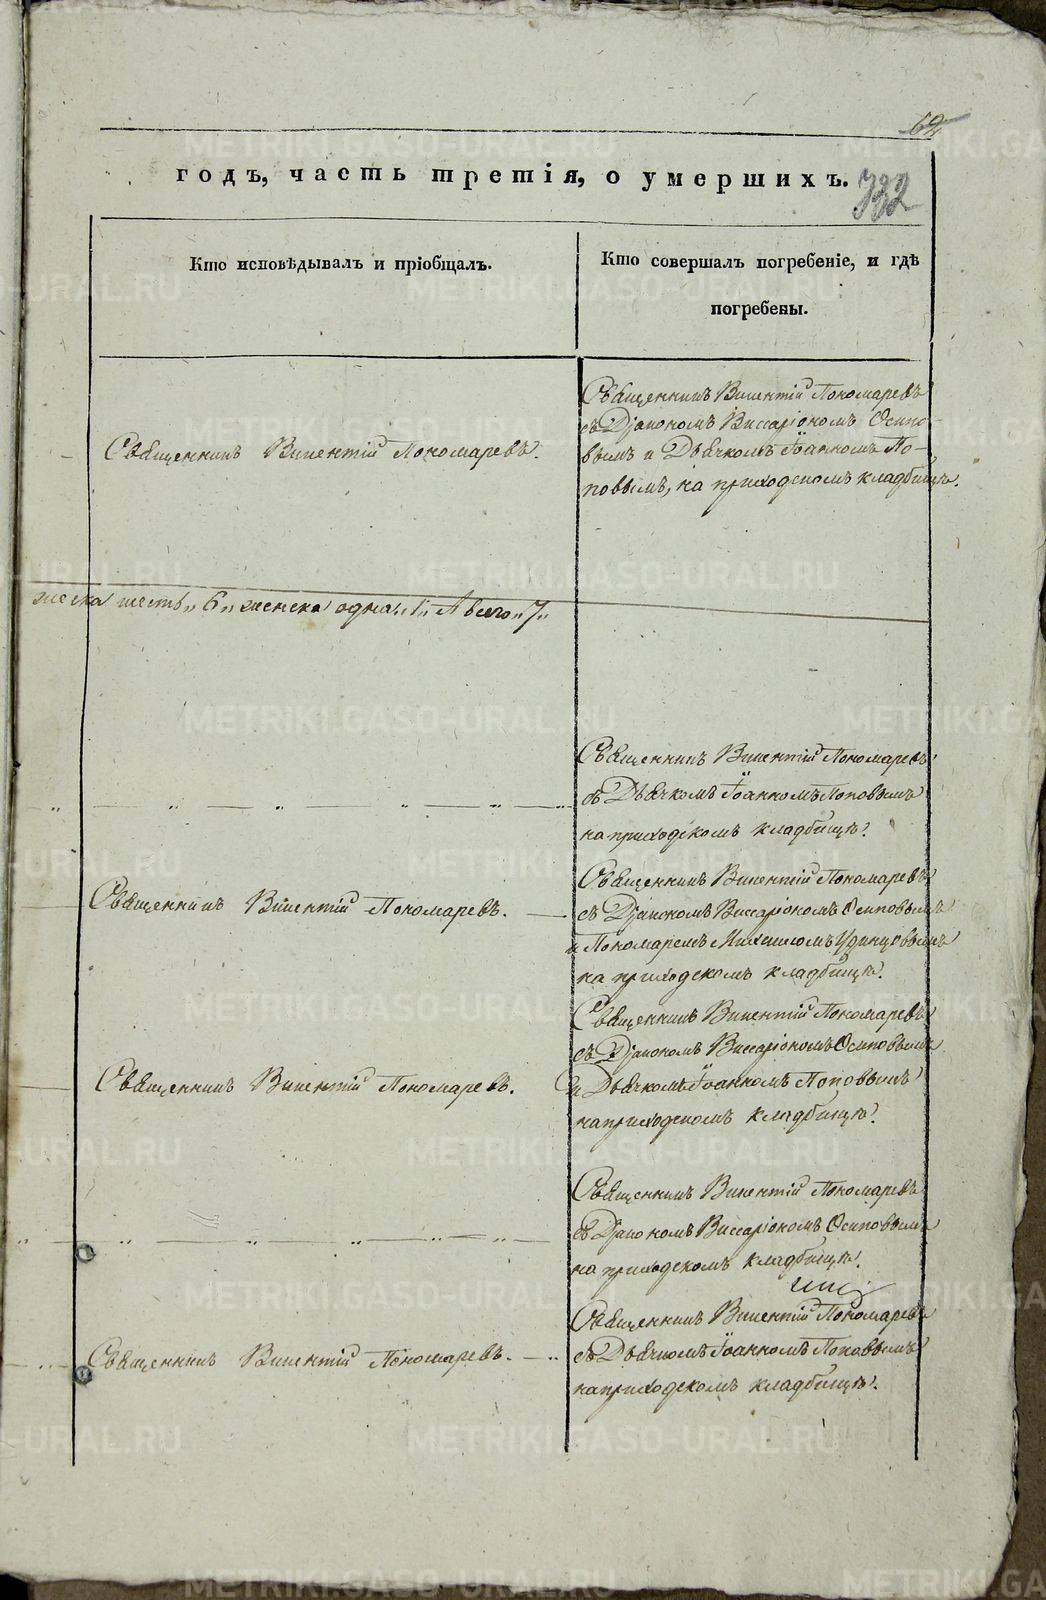 62
годъ, часть третія, о умершихъ.
332
Кто исповѣдывалъ и пріобщалъ.
Кто совершалъ погребеніе, и гдѣ
погребены.
Священникъ Викентій Пономаревъ.
Священникъ Викентій Пономаревъ
съ Діакономъ Виссаріономъ Осипо-
вымъ и Дьячкомъ Іоанномъ По-
повымъ, на приходскомъ кладбищѣ.
жеска шесть „6„ женска одна „1„ А всего „7„
Священникъ Викентій Пономаревъ
съ Дьячкомъ Іоанномъ Поповымъ
на приходскомъ кладбищѣ.
Священникъ Викентій Пономаревъ.
Священникъ Викентій Пономаревъ
съ Діакономъ Виссаріономъ Осиповымъ
и Пономаремъ Удинцовымъ
на приходскомъ кладбищѣ.
Священникъ Викентій Пономаревъ.
Священникъ Викентій Пономаревъ
съ Діакономъ Виссаріономъ Осиповымъ
и Дьячкомъ Іоанномъ Поповымъ
на приходскомъ кладбищѣ.
Священникъ Викентій Пономаревъ
съ Діакономъ Виссаріономъ Осиповымъ
на приходскомъ кладбищѣ.
Священникъ Викентій Пономаревъ.
Священникъ Викентій Пономаревъ
съ Дьячкомъ Іоанномъ Поповымъ
на приходскомъ кладбищѣ.
METRIKI.GASO-URAL.RU